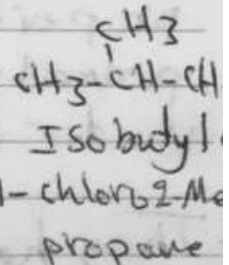 CH3
CH3-CH-CH
Isobutyl
1-chloro2-Me
propane